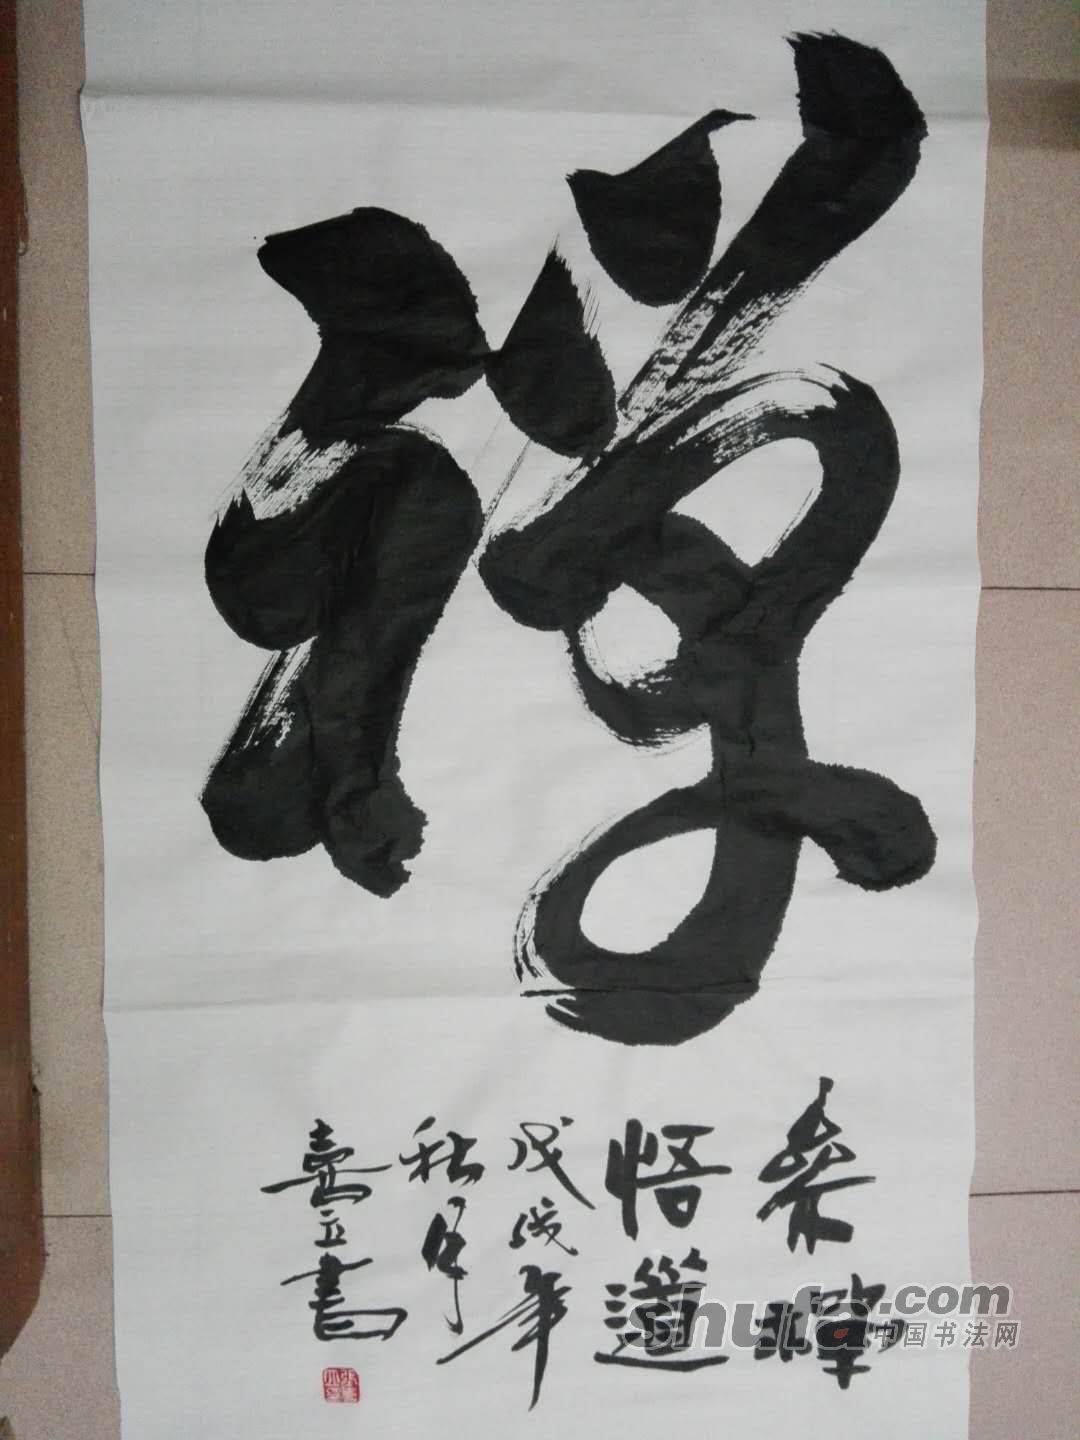 禅
参禅
悟道
戊戌年
秋月
喜立書
shufa.com
中国书法网